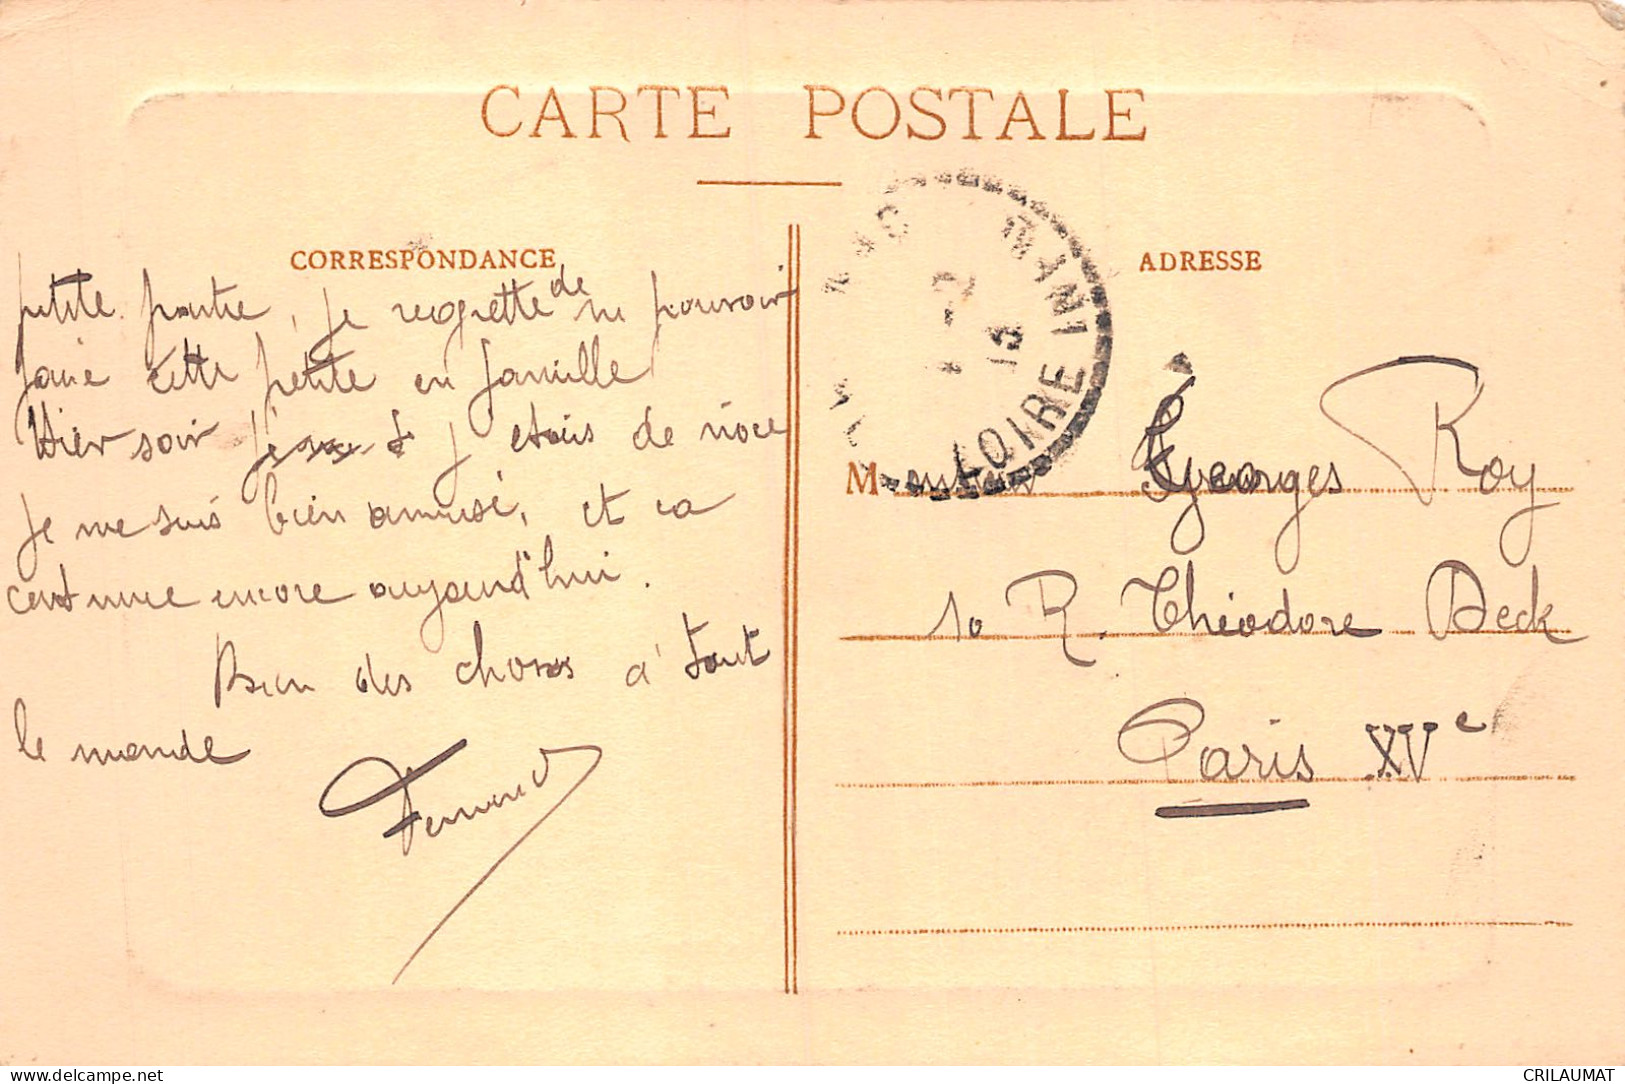 CARTE POSTALE
CORRESPONDANCE
petite partie, je regrette de ne pouvoir
faire cette petite en famille
Hier soir j etais de noce
Je me suis bien amusé, et ca
continue encore aujourd'hui.
Bien des choses à tout
le monde
Fernand
LOIRE INF
13
ADRESSE
Monsieur Georges Roy
10 R. Théodore Deck
Paris XVe
CRILAUMAT